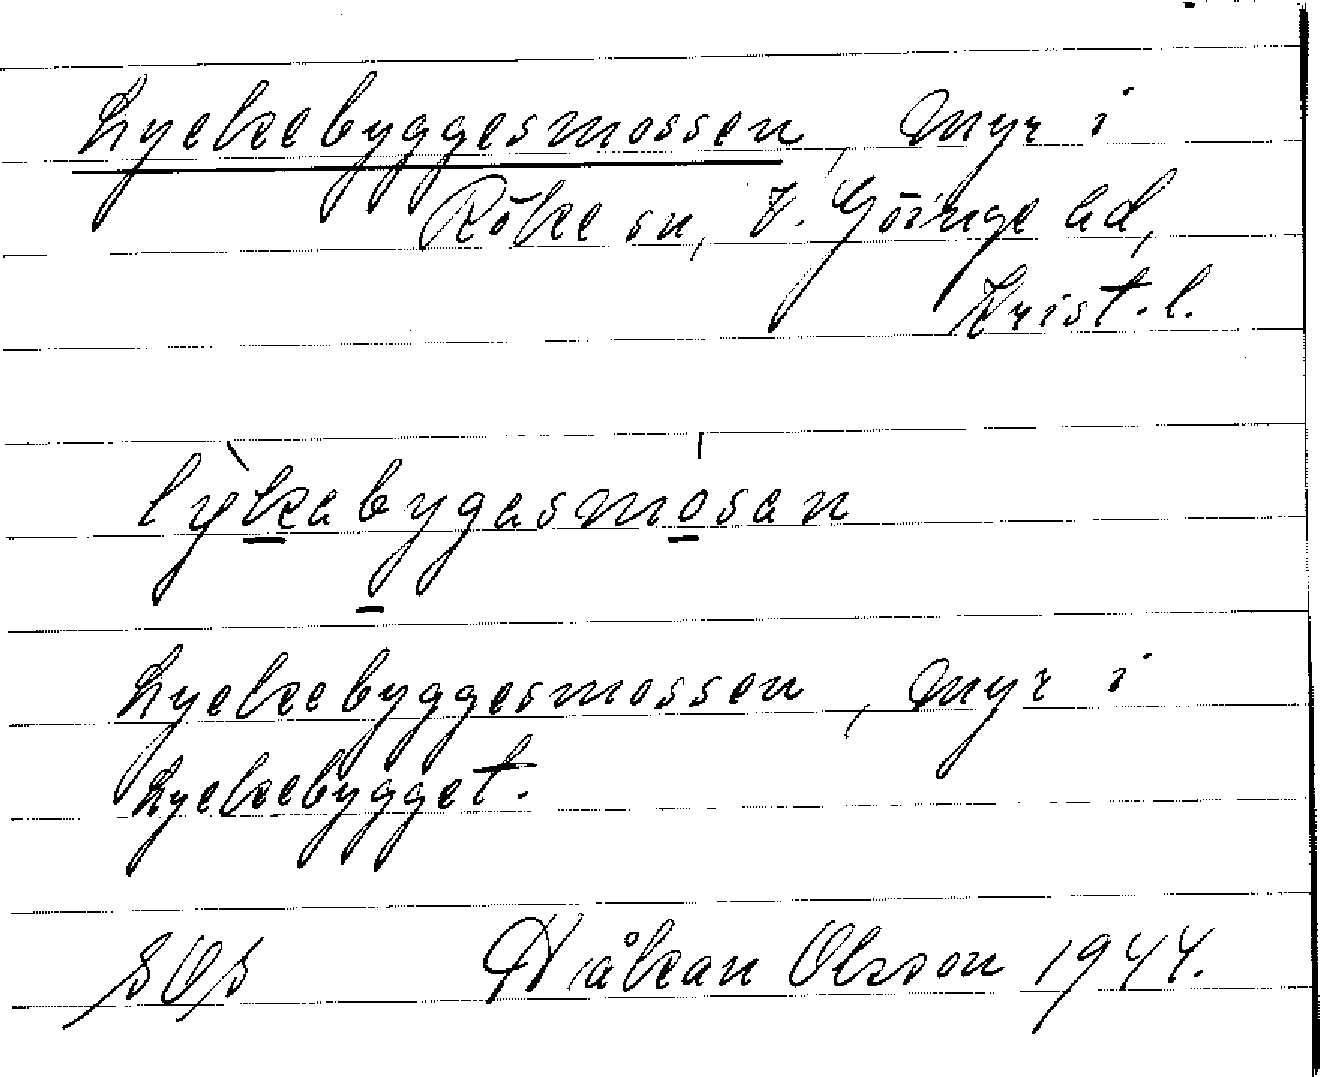 Lyckebyggesmossen, Myr i
Röke sn, V. Göinge hd,
Krist. l.
lỳkabygasmosan
Lyckebyggesmossen, Myr i
Lyckebygget.
SOS Håkan Olsson 1944.